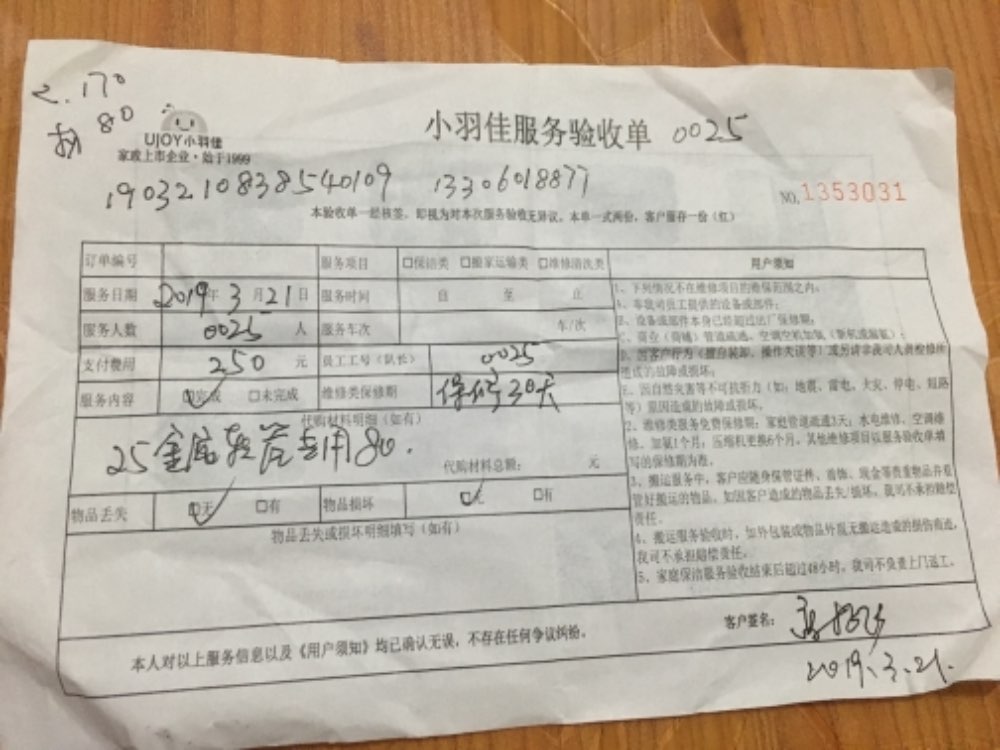 2.170
80
UJOY小羽佳
家政上市企业·始于1999
小羽佳服务验收单 0025
1903210838540109 13306018877
NO.1353031
本验收单一经核签，即视为对本次服务验收无异议。本单一式两份，客户留存一份（红）
订单编号 服务项目 □保洁类 □搬家运输类 □维修清洗类
服务日期 2019年3月21日 服务时间 自 至 止
服务人数 0025 人 服务车次 车/次
支付费用 250 元 员工工号（队长） 0025
服务内容 □完成 □未完成 维修类保修期 保修30天
代购材料明细（如有）
25金底 专用80.
代购材料总额： 元
物品丢失 □无 □有 物品损坏 □无 □有
物品丢失或损坏明细填写（如有）
用户须知
1、下列情况不在维修项目的维保范围之内：
A、非我司员工提供的设备或部件；
B、设备或部件本身已经超过出厂保修期；
C、商业（商铺）管道疏通、空调空机加氨（新机或漏氨）；
D、因客户行为（擅自装卸、操作失误等）或另请非我司人员检修所
造成的故障或损坏；
E、因自然灾害等不可抗拒力（如：地震、雷电、火灾、停电、短路
等）原因造成的故障或损坏。
2、维修类服务免费保修期：家庭管道疏通3天；水电维修、空调维
修、加氨1个月；压缩机更换6个月。其他维修项目以服务验收单填
写的保修期为准。
3、搬运服务中，客户应随身保管证件、首饰、现金等贵重物品并看
管好搬运的物品。如因客户造成的物品丢失/损坏，我司不承担赔偿
责任。
4、搬运服务验收时，如外包装或物品外观无搬运造成的损伤痕迹，
我司不承担赔偿责任。
5、家庭保洁服务验收结束后超过48小时，我司不负责上门返工。
本人对以上服务信息以及《用户须知》均已确认无误，不存在任何争议纠纷。
客户签名：
2019.3.21.